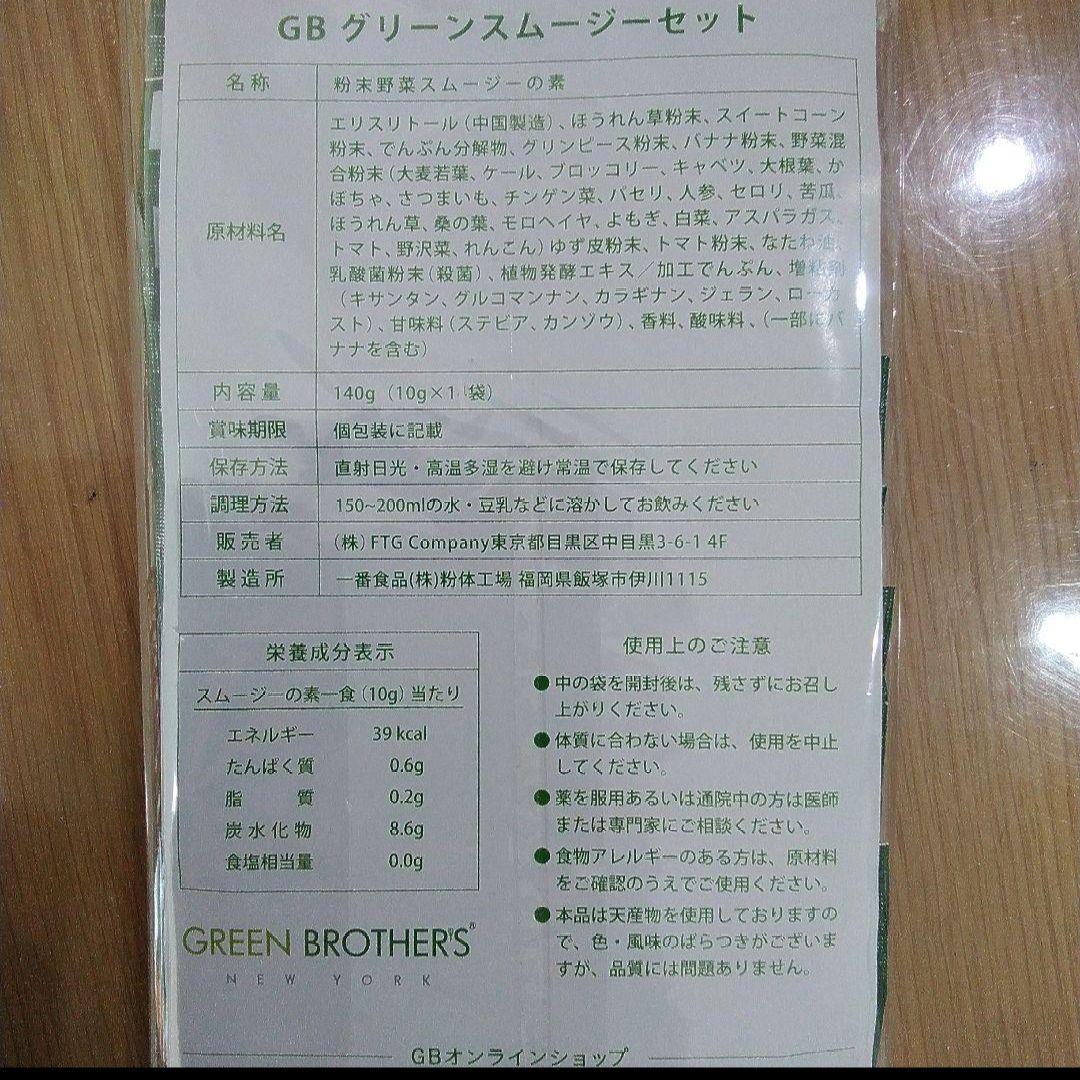 GB グリーンスムージーセット
名称 粉末野菜スムージーの素
原材料名
エリスリトール(中国製造)、ほうれん草粉末、スイートコーン
粉末、でんぷん分解物、グリンピース粉末、バナナ粉末、野菜混
合粉末(大麦若葉、ケール、ブロッコリー、キャベツ、大根葉、か
ぼちゃ、さつまいも、チンゲン菜、パセリ、人参、セロリ、苦瓜、
ほうれん草、桑の葉、モロヘイヤ、よもぎ、白菜、アスパラガス、
トマト、野沢菜、れんこん)ゆず皮粉末、トマト粉末、なたね油、
乳酸菌粉末(殺菌)、植物発酵エキス/加工でんぷん、増粘剤
(キサンタン、グルコマンナン、カラギナン、ジェラン、ローカ
スト)、甘味料(ステビア、カンゾウ)、香料、酸味料、(一部にバ
ナナを含む)
内容量 140g(10g×1 袋)
賞味期限 個包装に記載
保存方法 直射日光・高温多湿を避け常温で保存してください
調理方法 150~200mlの水・豆乳などに溶かしてお飲みください
販売者 (株)FTG Company東京都目黒区中目黒3-6-1 4F
製造所 一番食品(株)粉体工場 福岡県飯塚市伊川1115
栄養成分表示
スムージーの素一食(10g)当たり
エネルギー 39 kcal
たんぱく質 0.6g
脂質 0.2g
炭水化物 8.6g
食塩相当量 0.0g
GREEN BROTHER'S®
NEW YORK
使用上のご注意
●中の袋を開封後は、残さずにお召し
上がりください。
●体質に合わない場合は、使用を中止
してください。
●薬を服用あるいは通院中の方は医師
または専門家にご相談ください。
●食物アレルギーのある方は、原材料
をご確認のうえでご使用ください。
●本品は天産物を使用しておりますの
で、色・風味のばらつきがございま
すが、品質には問題ありません。
GBオンラインショップ